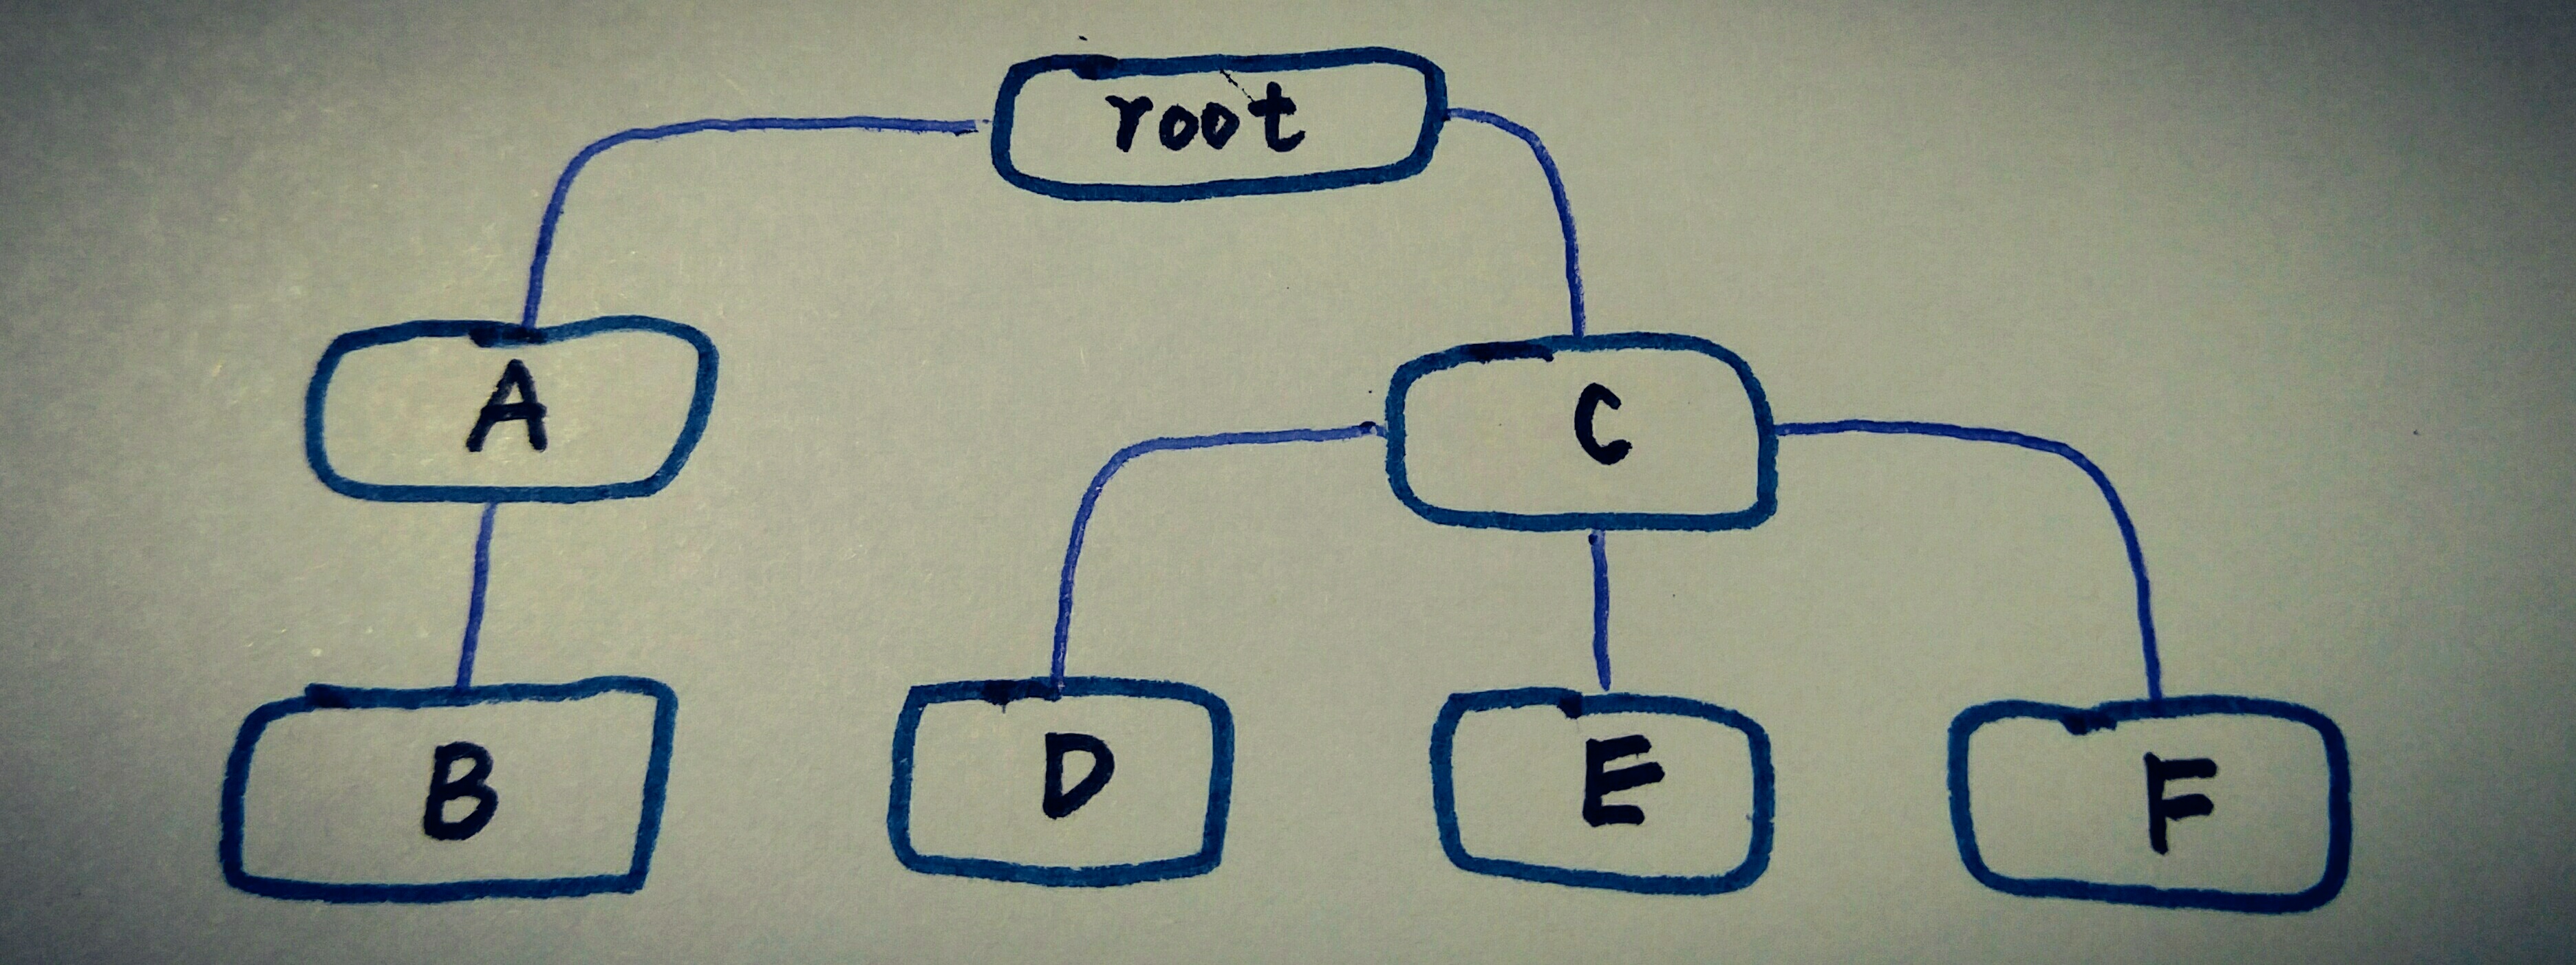 root
A
C
B
D
E
F